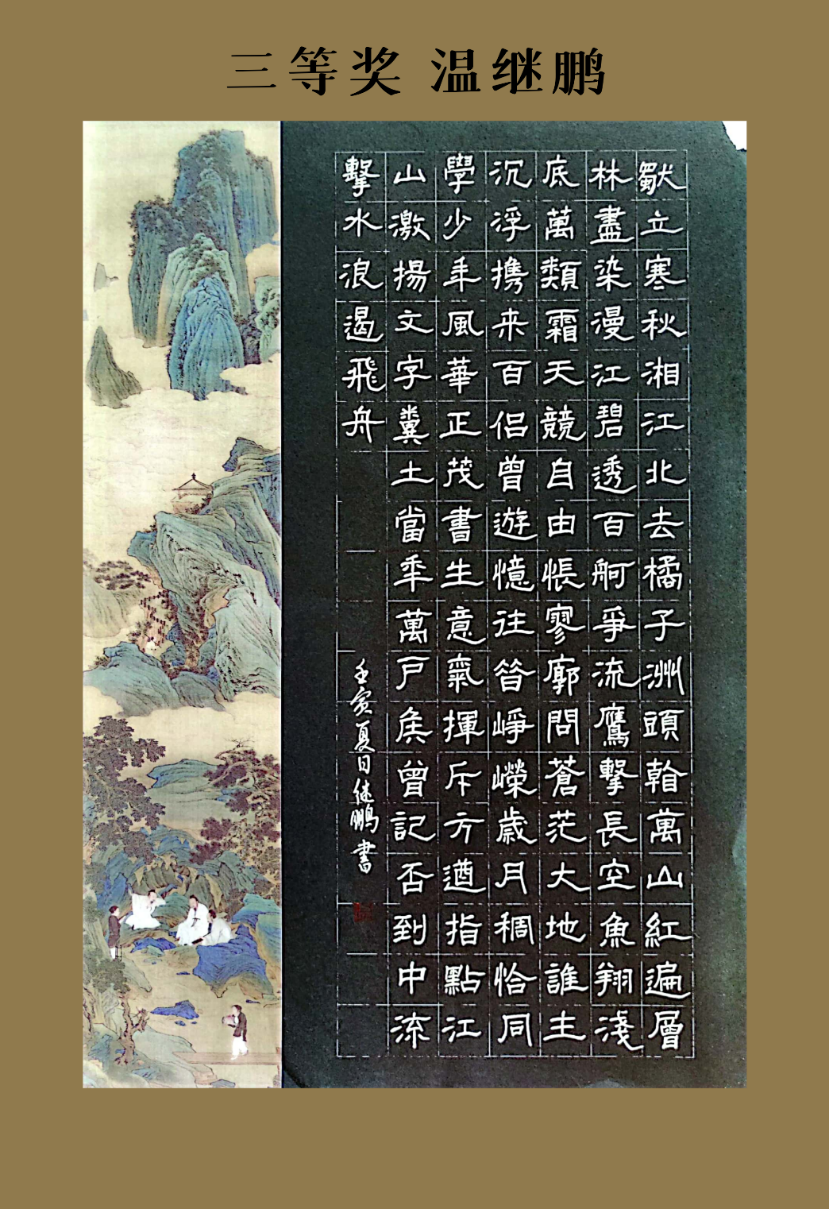 三等奖 温继鹏
獨立寒秋湘江北去橘子洲頭看萬山紅遍層
林盡染漫江碧透百舸爭流鷹擊長空魚翔淺
底萬類霜天競自由悵寥廓問蒼茫大地誰主
沉浮携来百侣曾遊憶往昔崢嶸歲月稠恰同
學少年風華正茂書生意氣揮斥方遒指點江
山激揚文字糞土當年萬戶侯曾記否到中流
擊水浪遏飛舟
壬寅夏日继鵬書